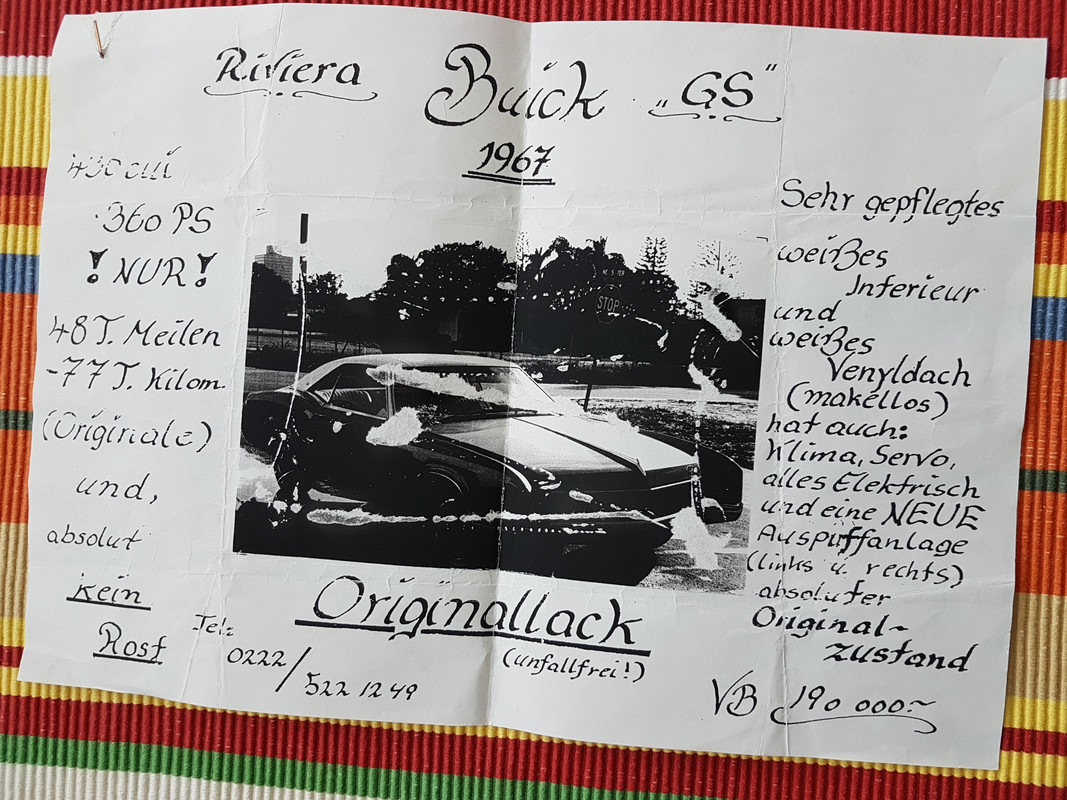 Riviera Buick „GS"
1967
430 cui
360 PS
! NUR !
48 T. Meilen
-77 T. Kilom.
(Originale)
und,
absolut
kein
Rost
STOP
Originallack
(unfallfrei!)
Tel:
0222/522 12 49
Sehr gepflegtes
weißes
Interieur
und
weißes
Venyldach
(makellos)
hat auch:
Klima, Servo,
alles Elektrisch
und eine NEUE
Auspuffanlage
(links u. rechts)
absoluter
Original-
zustand
VB 190 000.-